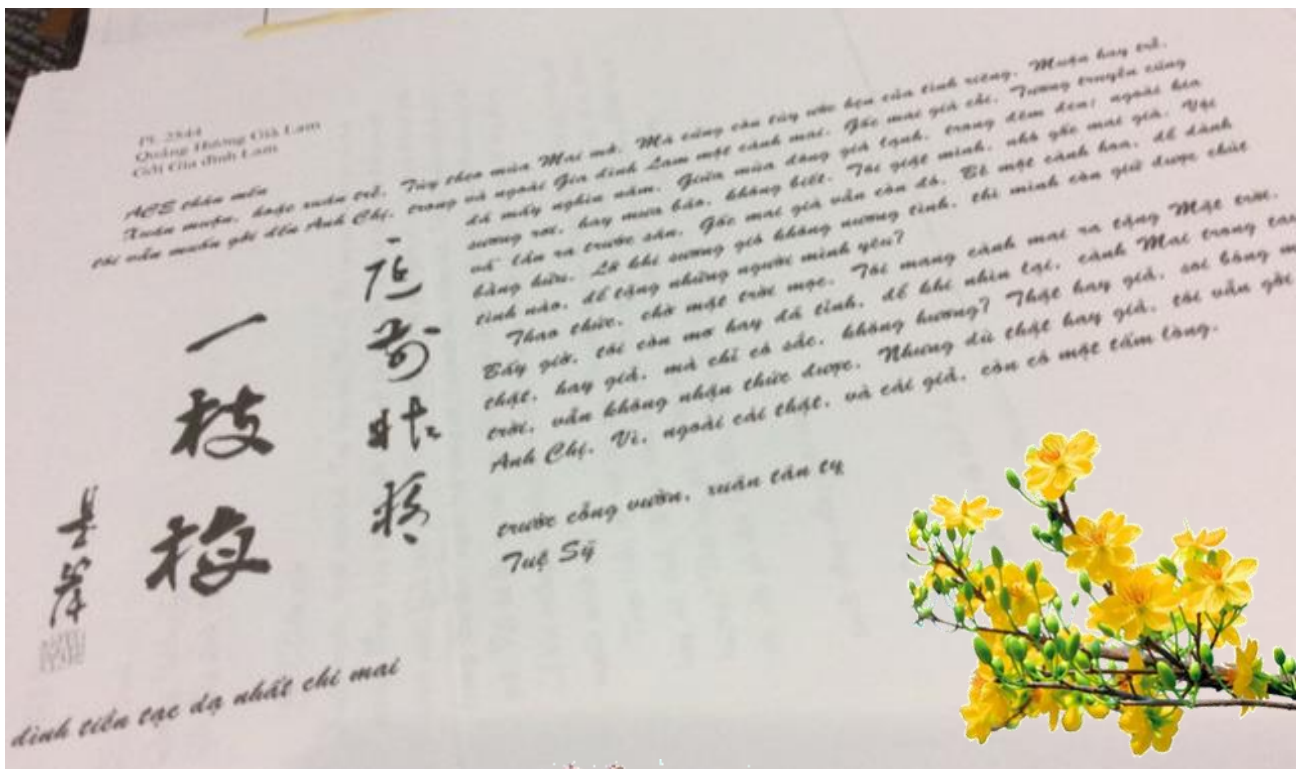 PL 2544
Quảng Hương Già Lam
Gởi Gia đình Lam
ACE thân mến
Xuân muộn, hoặc xuân trễ. Tùy theo mùa Mai nở. Mà cũng còn tùy ước hẹn của tình riêng. Muộn hay trễ,
tôi vẫn muốn gởi đến Anh Chị, trong và ngoài Gia đình Lam một cành mai. Gốc mai già cỗi. Tương truyền cũng
đã mấy nghìn năm. Giữa mùa đông giá lạnh, trong đêm đen; ngoài kia
sương rơi, hay mưa bão, không biết. Tôi giật mình, nhớ gốc mai già. Vội
vã lần ra trước sân. Gốc mai già vẫn còn đó. Bẻ một cành hoa, để dành
bằng hữu. Lỡ khi sương gió không nương tình, thì mình còn giữ được chút
tình nào, để tặng những người mình yêu?
Thao thức, chờ mặt trời mọc. Tôi mang cành mai ra tặng Mặt trời.
Bấy giờ, tôi còn mơ hay đã tỉnh, để khi nhìn lại, cành Mai trong tay
thật, hay giả, mà chỉ có sắc, không hương? Thật hay giả, soi bóng
trời, vẫn không nhận thức được. Nhưng dù thật hay giả, tôi vẫn gởi
Anh Chị. Vì, ngoài cái thật, và cái giả, còn có một tấm lòng.
trước cổng vườn, xuân tân tỵ
Tuệ Sỹ
庭前昨夜
一枝梅
đình tiền tạc dạ nhất chi mai